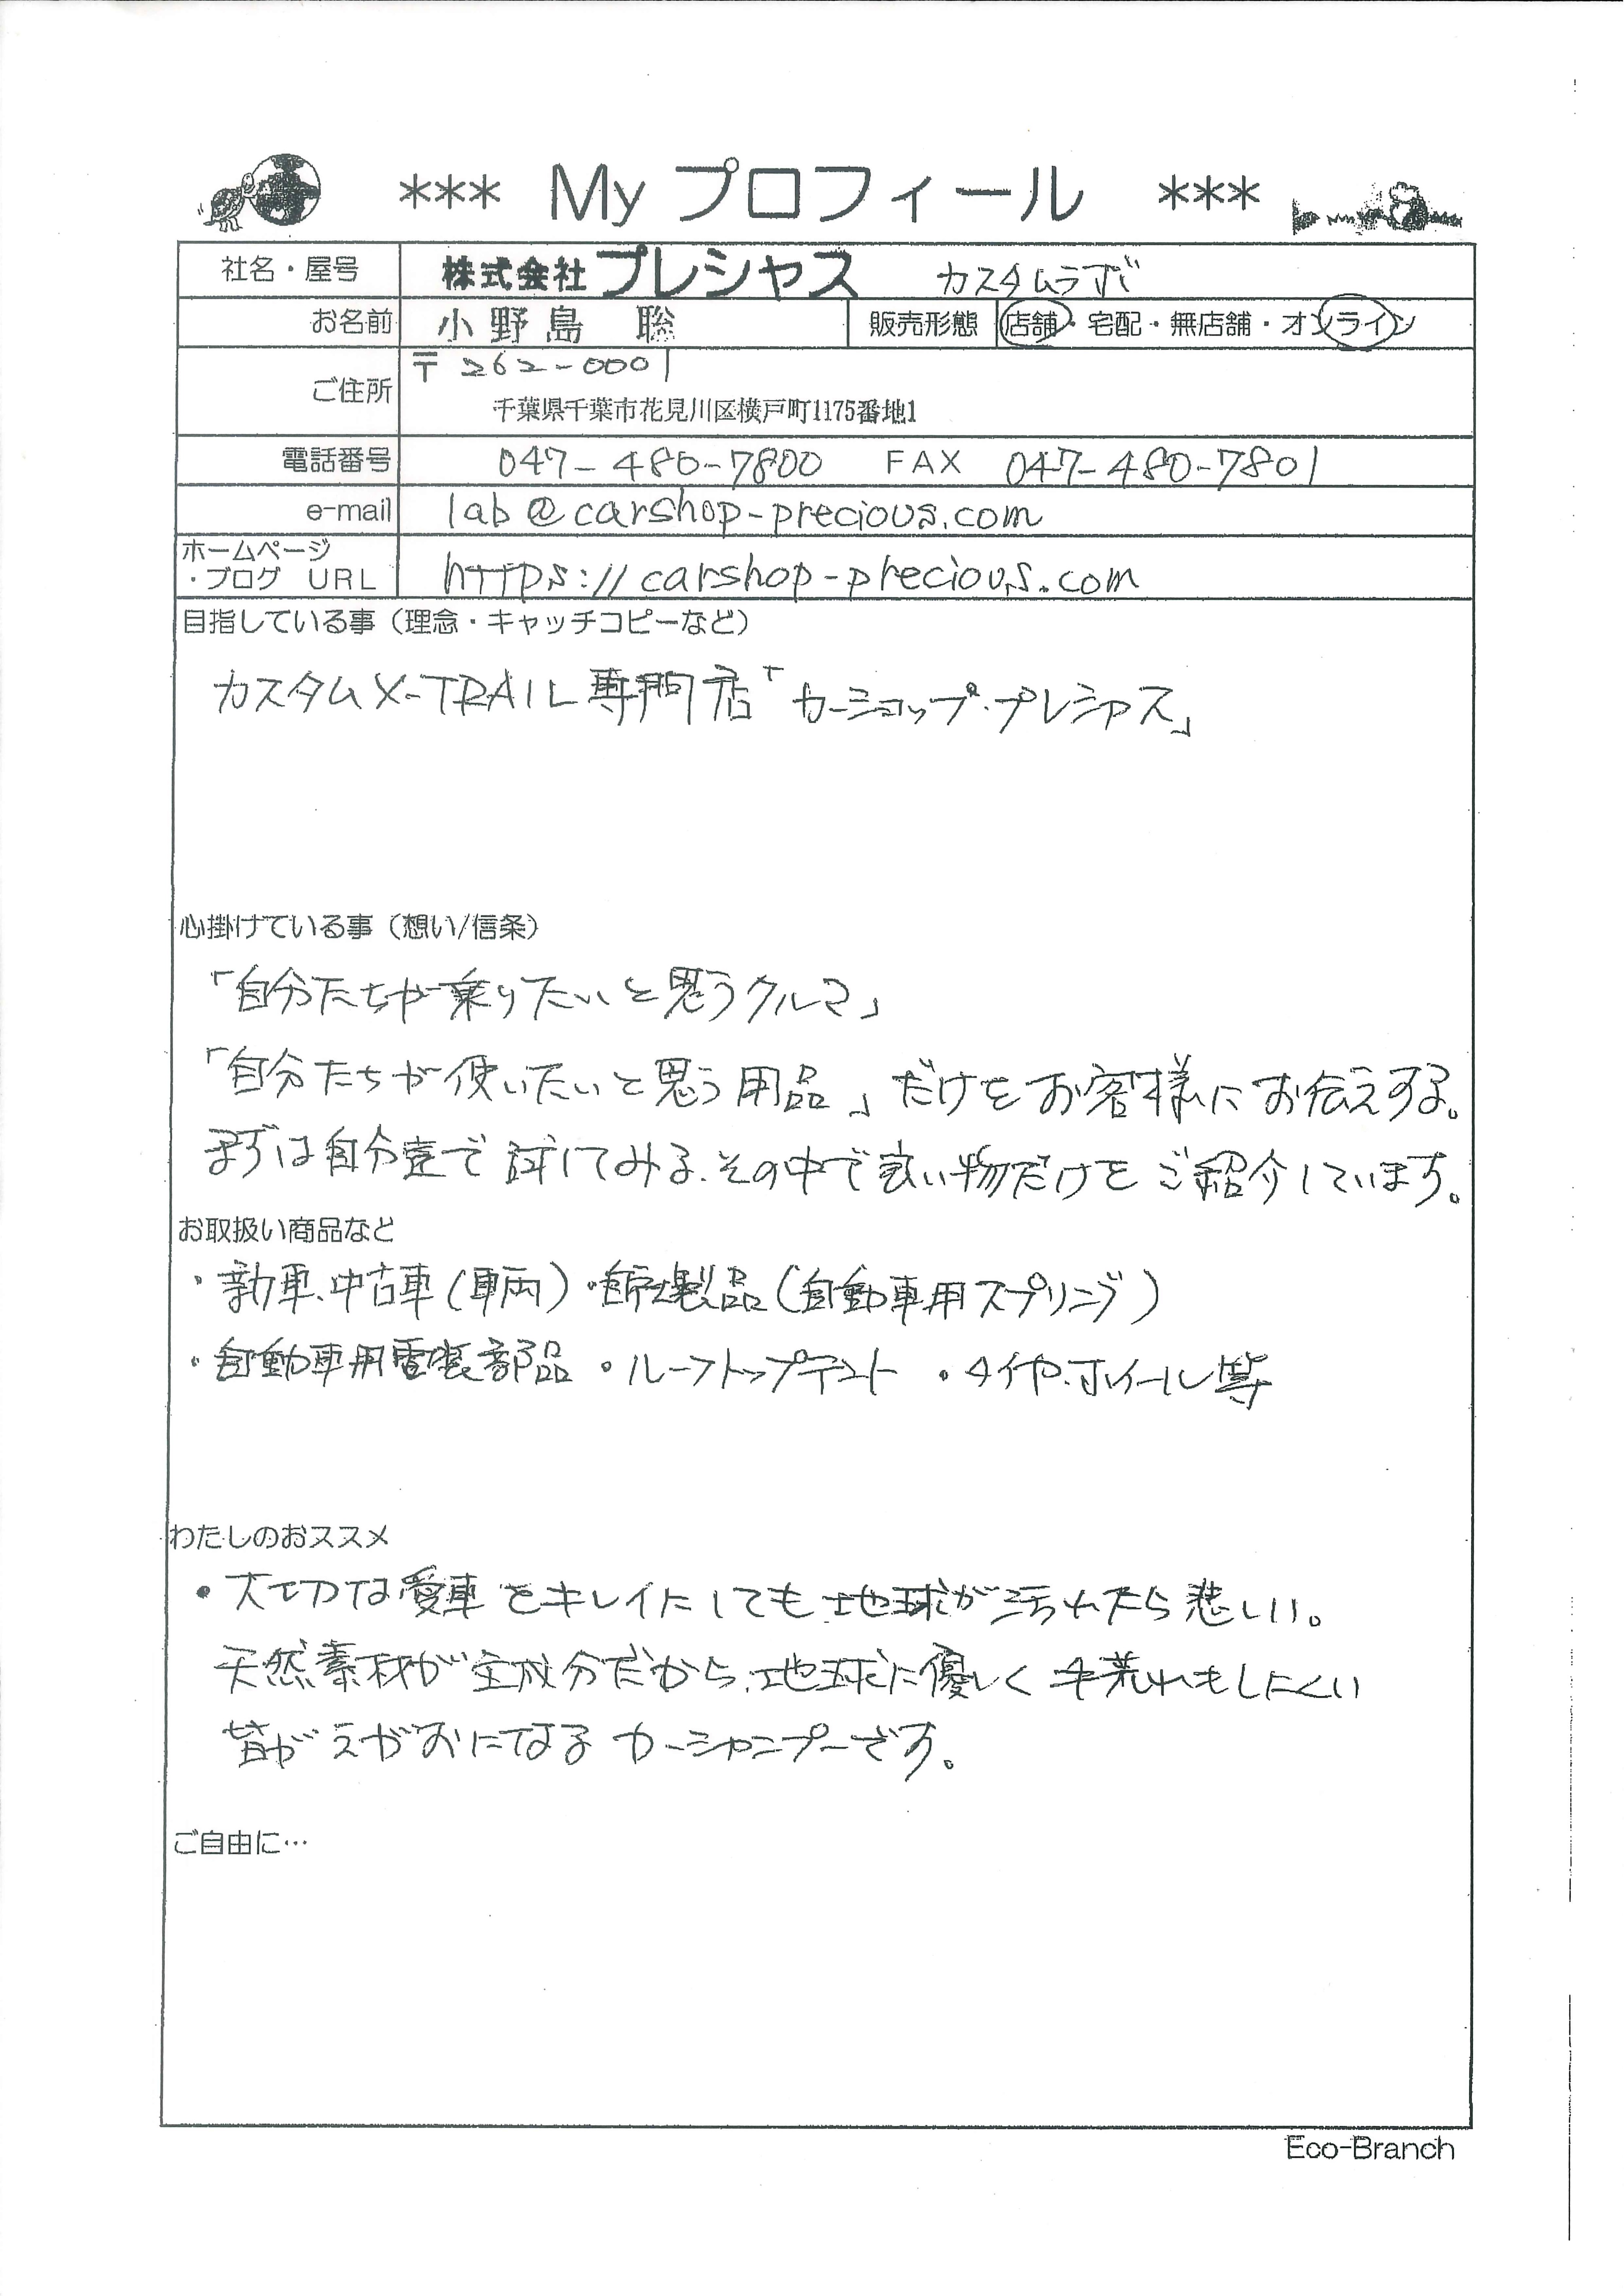 *** My プロフィール ***
社名・屋号 株式会社 プレシャス カスタムラボ
お名前 小野島 聡 販売形態 店舗・宅配・無店舗・オンライン
ご住所 〒262-0001
千葉県千葉市花見川区横戸町1175番地1
電話番号 047-480-7800 FAX 047-480-7801
e-mail lab@carshop-precious.com
ホームページ
・ブログ URL https://carshop-precious.com
目指している事(理念・キャッチコピーなど)
カスタムX-TRAIL専門店「カーショップ・プレシャス」
心掛けている事(想い/信条)
「自分たちが乗りたいと思うクルマ」
「自分たちが使いたいと思う用品」だけをお客様にお伝えする。
まずは自分達で試してみる、その中で良い物だけをご紹介しています。
お取扱い商品など
・新車、中古車(車両)・鍛造製品(自動車用スプリング)
・自動車用電装部品 ・ルーフトップテント ・タイヤ、ホイール等
わたしのおススメ
・大切な愛車をキレイにしても地球が汚れたら悲しい。
天然素材が主成分だから、地球に優しく手荒れもしにくい
皆がえがおになるカーシャンプーです。
ご自由に…
Eco-Branch